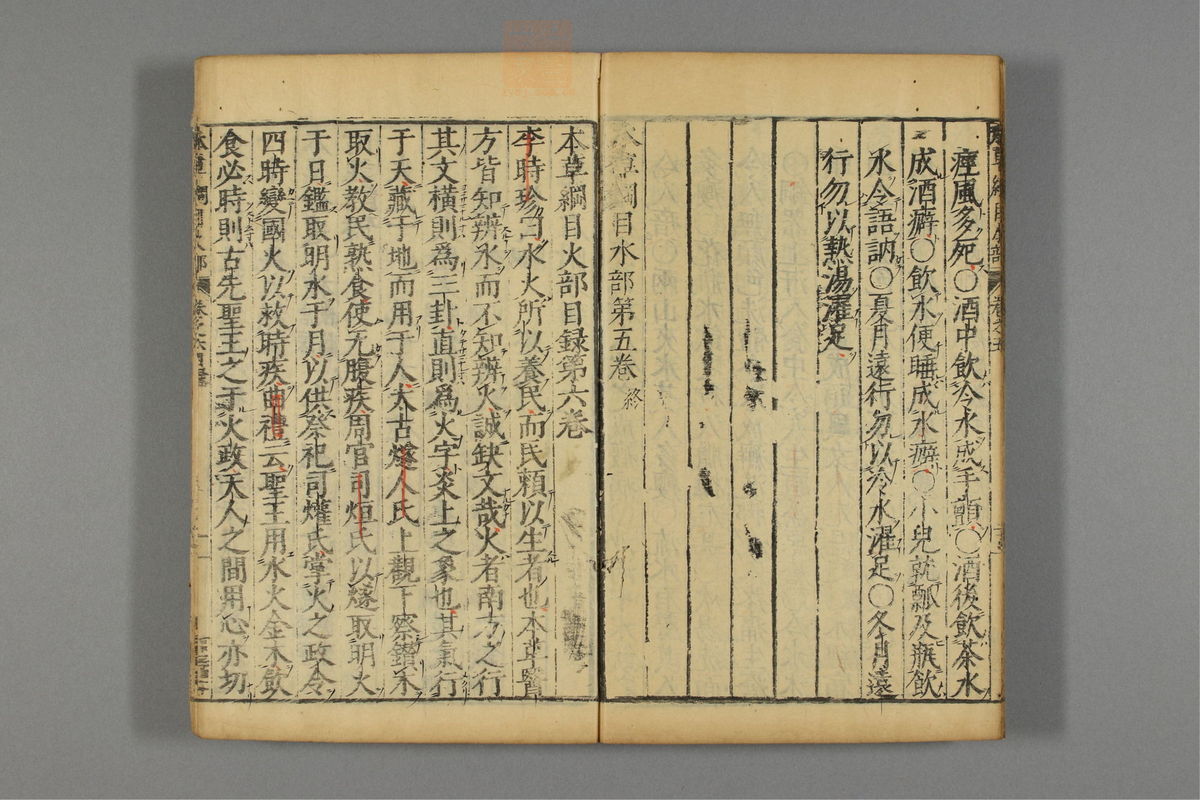 痙風多死○酒中飲冷水成手顫○酒後飲茶水
成酒癖○飲水便睡成水癖○小兒就瓢及瓶飲
水令語訥○夏月遠行勿以冷水濯足○冬月遠
行勿以熱湯濯足
本草綱目水部第五卷 終
本草綱目火部目録第六卷
李時珍曰水火所以養民而民賴以生者也本草醫
方皆知辨水而不知辨火誠缺文哉火者南方之行
其文横則為三卦直則為火字炎上之象也其氣行
于天藏于地而用于人太古燧人氏上觀下察鑽木
取火教民熟食使无腹疾周官司烜氏以燧取明火
于日鑑取明水于月以供祭祀司爟氏掌火之政令
四時變國火以救時疾曲禮云聖王用水火金木飲
食必時則古先聖王之于火政天人之間用心亦切